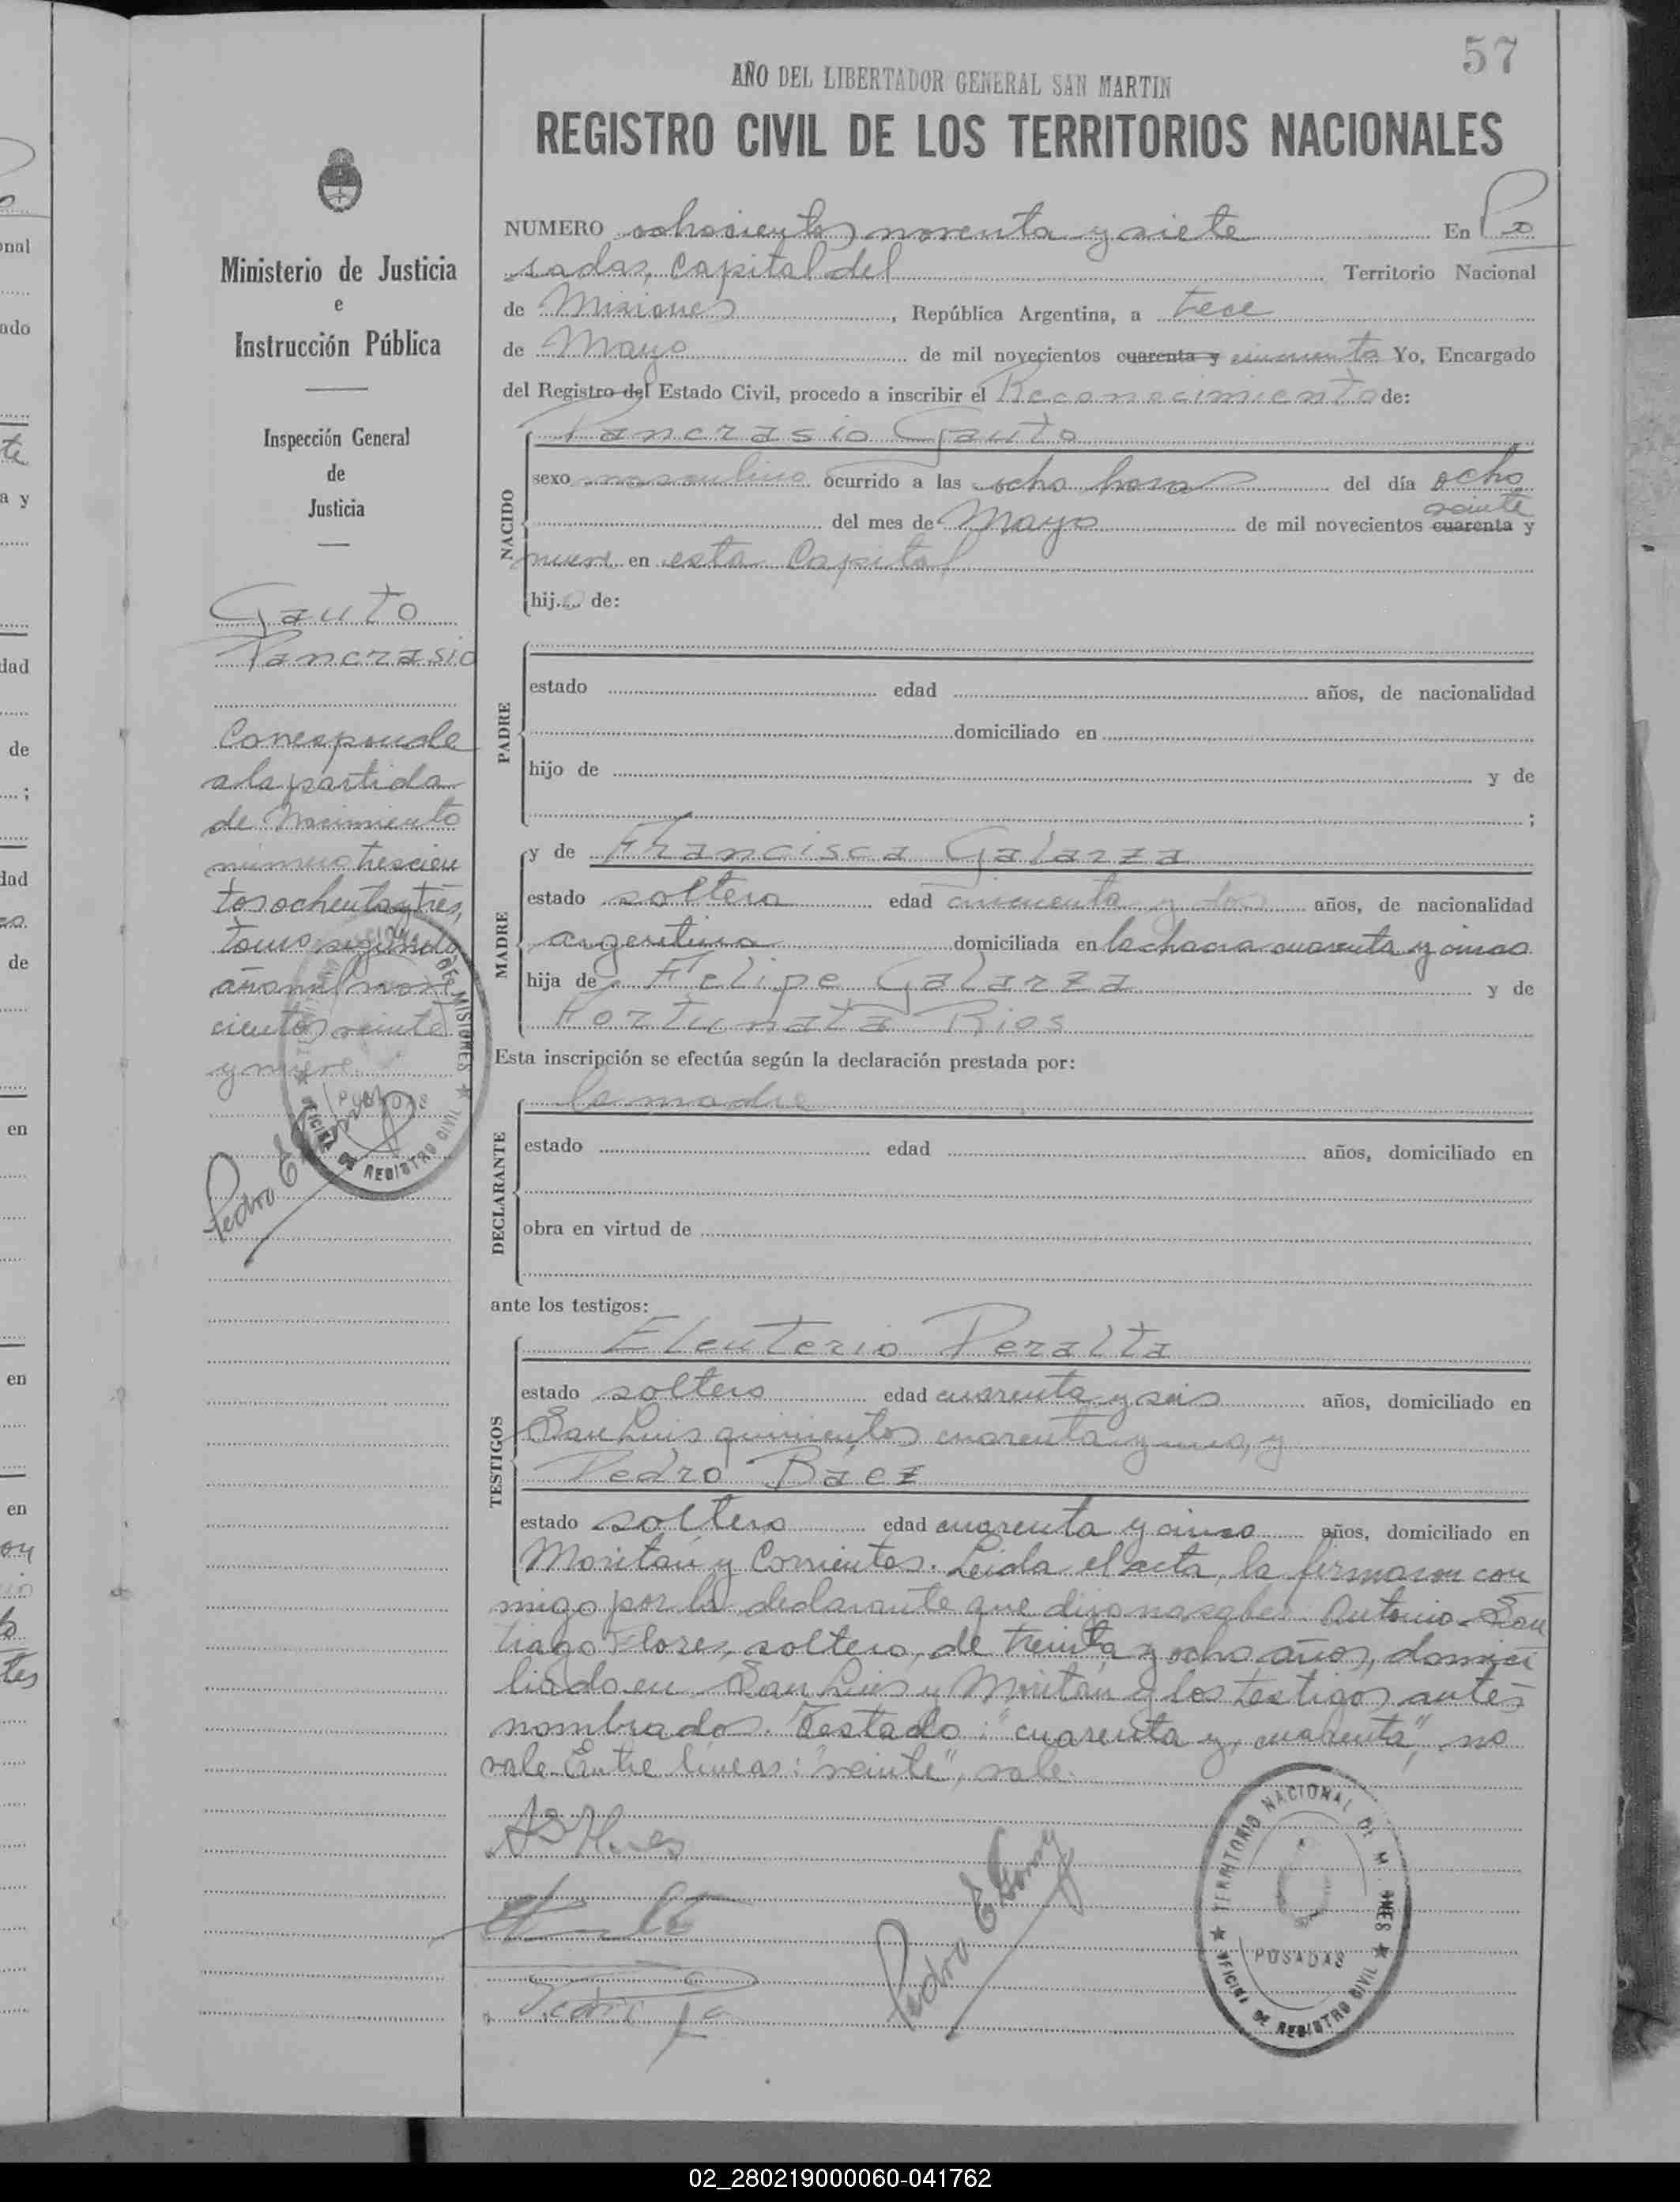 57
AÑO DEL LIBERTADOR GENERAL SAN MARTIN
REGISTRO CIVIL DE LOS TERRITORIOS NACIONALES
Ministerio de Justicia
e
Instrucción Pública
Inspección General
de
Justicia
Gauto
Pancrasio
Corresponde
a la partida
de Nacimiento
número trescien
tos ochenta y tres,
tomo segundo
año mil nove
cientos veinte
y nueve
NUMERO ochocientos noventa y siete En Po
sadas, Capital del Territorio Nacional
de Misiones, República Argentina, a trece
de Mayo de mil novecientos cuarenta y cincuenta Yo, Encargado
del Registro del Estado Civil, procedo a inscribir el Reconocimiento de:
Pancrasio Gauto
NACIDO
sexo masculino ocurrido a las ocho horas del día ocho
veinte
del mes de Mayo de mil novecientos cuarenta y
nueve en esta Capital
hijo de:
PADRE
estado edad años, de nacionalidad
domiciliado en
hijo de y de
;
MADRE
y de Francisca Galarza
estado soltera edad cincuenta y dos años, de nacionalidad
argentina domiciliada en la chacra cuarenta y cinco
hija de Felipe Galarza y de
Fortunata Rios
Esta inscripción se efectúa según la declaración prestada por:
DECLARANTE
la madre
estado edad años, domiciliado en
obra en virtud de
ante los testigos:
TESTIGOS
Eleuterio Peralta
estado soltero edad cuarenta y seis años, domiciliado en
San Luis quinientos cuarenta y uno, y
Pedro Báez
estado soltero edad cuarenta y cinco años, domiciliado en
Moritán y Corrientes. Leida el acta, la firmaron con
migo por la declarante que dijo no saber Antonio San
tiago Flores, soltero, de treinta y ocho años, domici
liado en San Luis y Moritán y los testigos antes
nombrados. Testado: "cuarenta y, cuarenta", no
vale. Entre líneas: "veinte", vale.
AS Flores
Pedro E Gomez
TERRITORIO NACIONAL DE MISIONES
POSADAS
OFICINA DE REGISTRO CIVIL
02_280219000060-041762